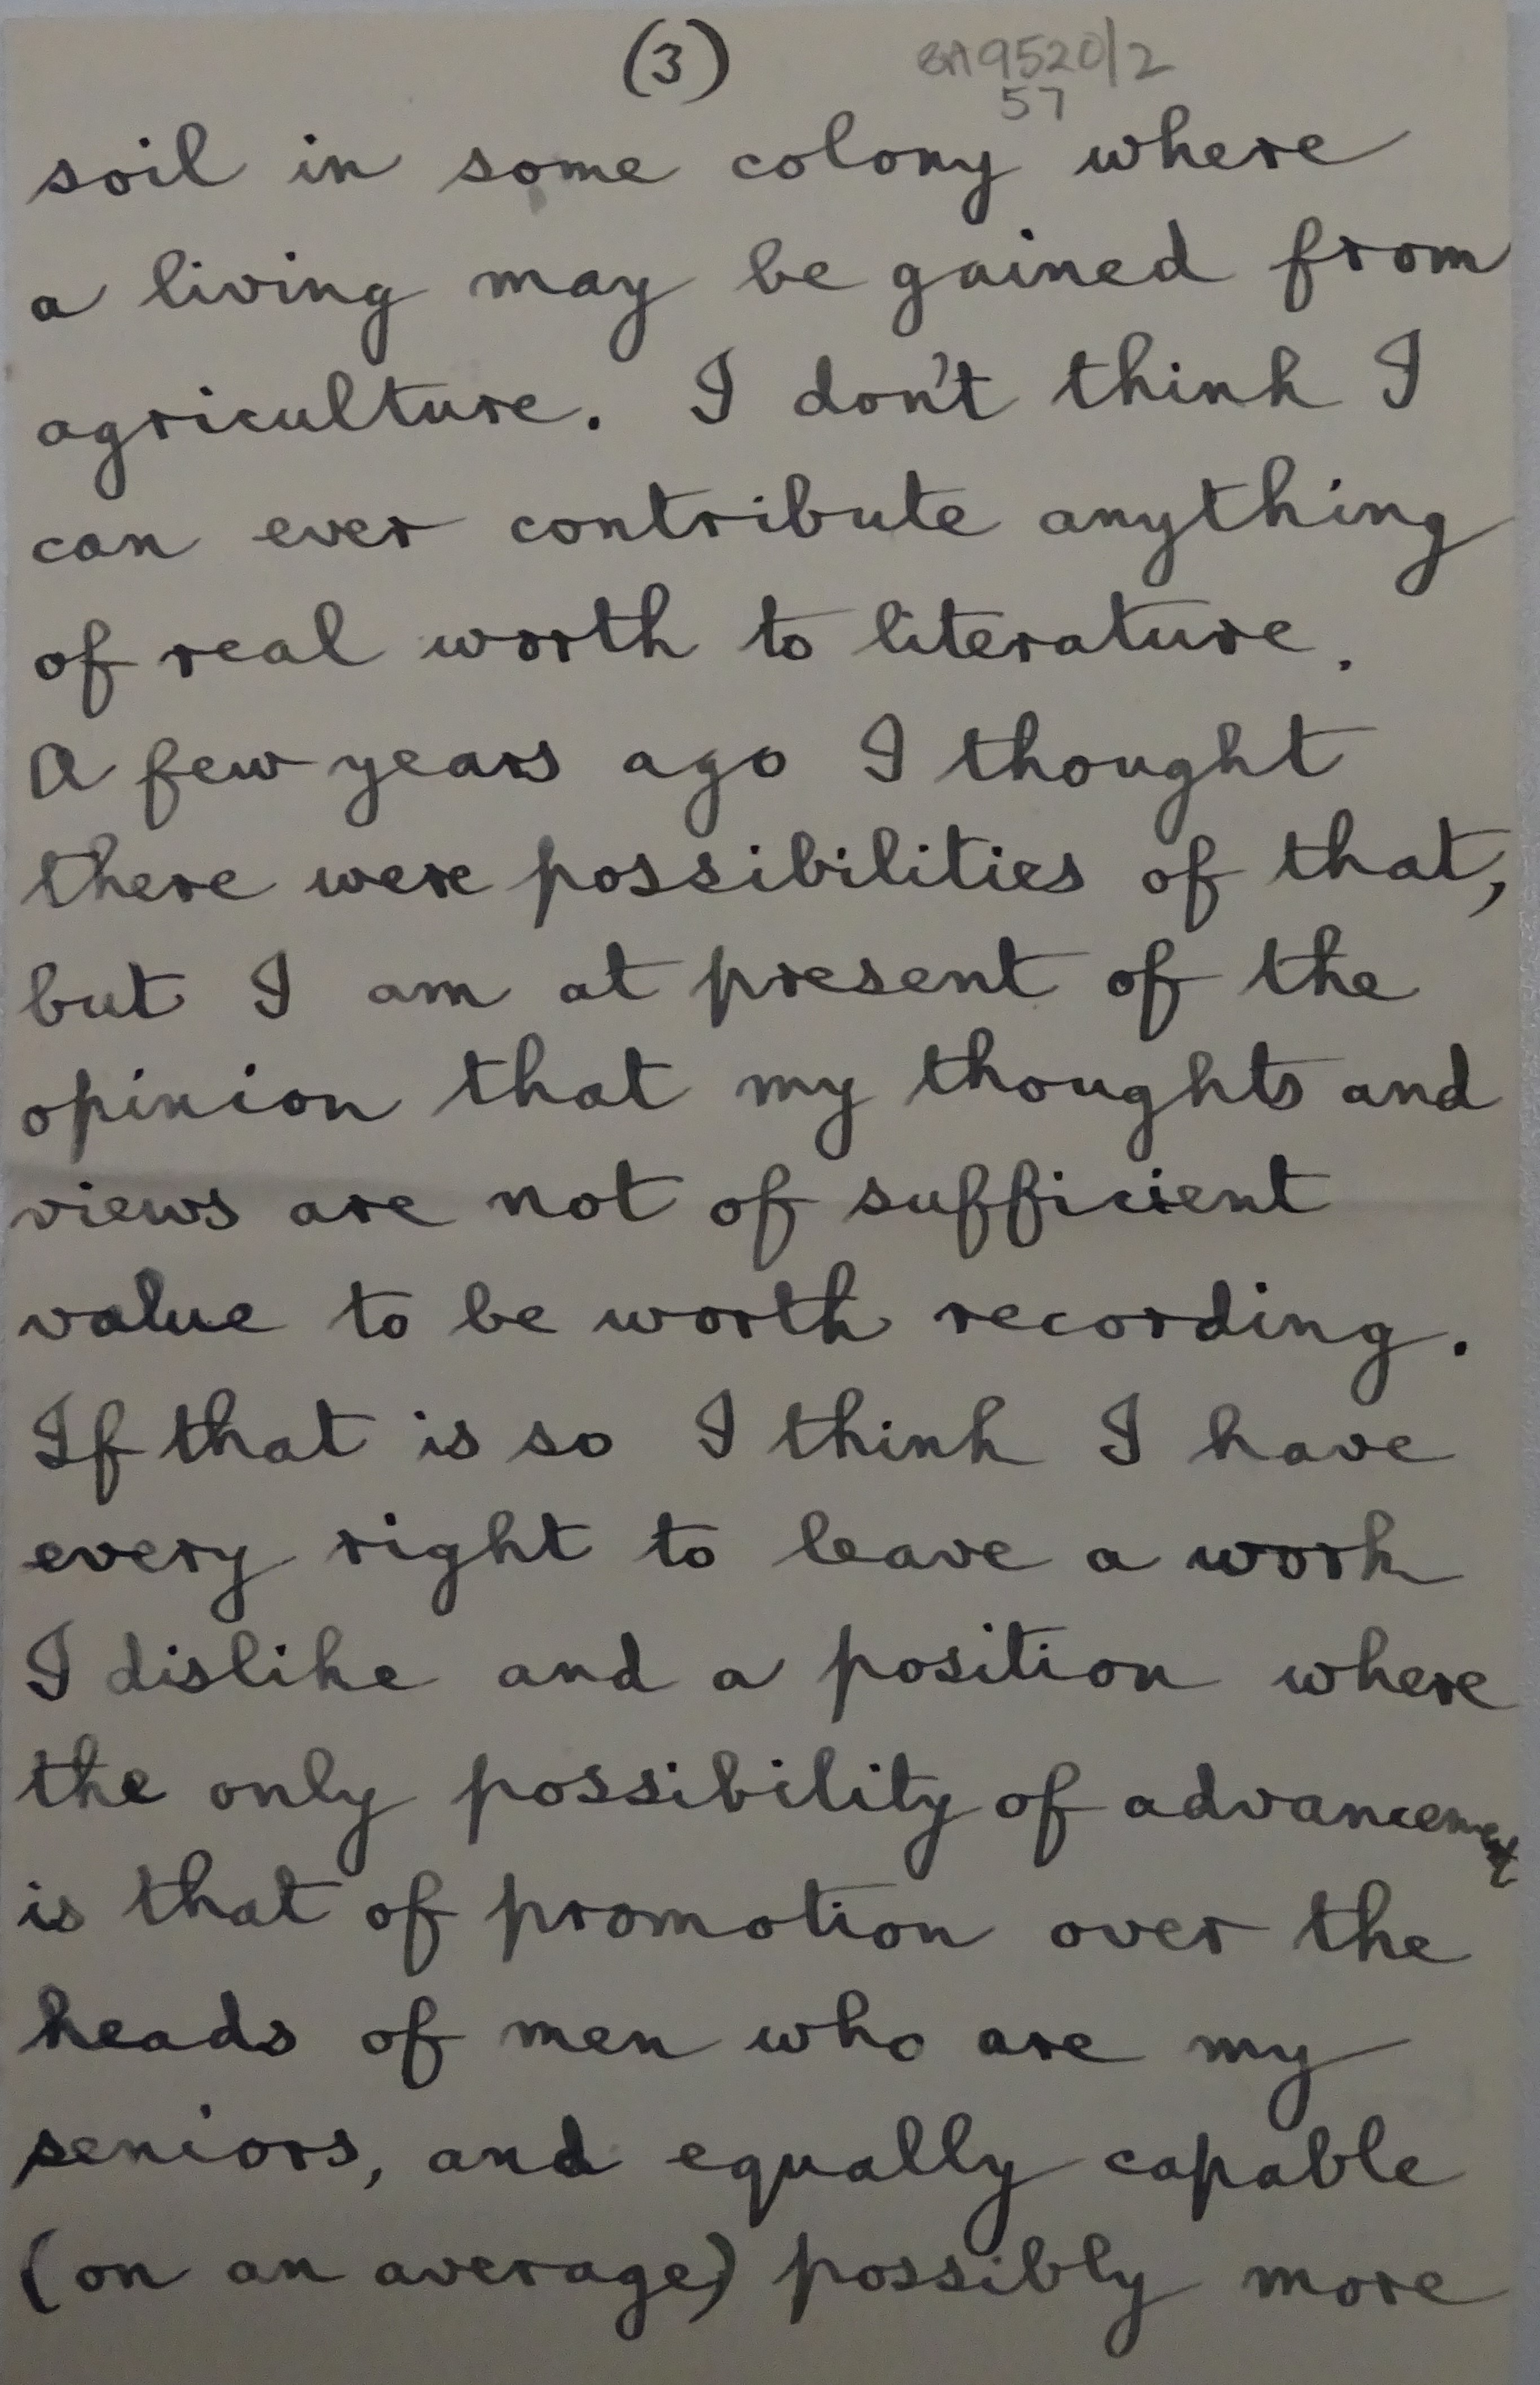 (3)
BA9520/2
57
soil in some colony where
a living may be gained from
agriculture. I don't think I
can ever contribute anything
of real worth to literature.
A few years ago I thought
there were possibilities of that,
but I am at present of the
opinion that my thoughts and
views are not of sufficient
value to be worth recording.
If that is so I think I have
every right to leave a work
I dislike and a position where
the only possibility of advancement
is that of promotion over the
heads of men who are my
seniors, and equally capable
(on an average) possibly more